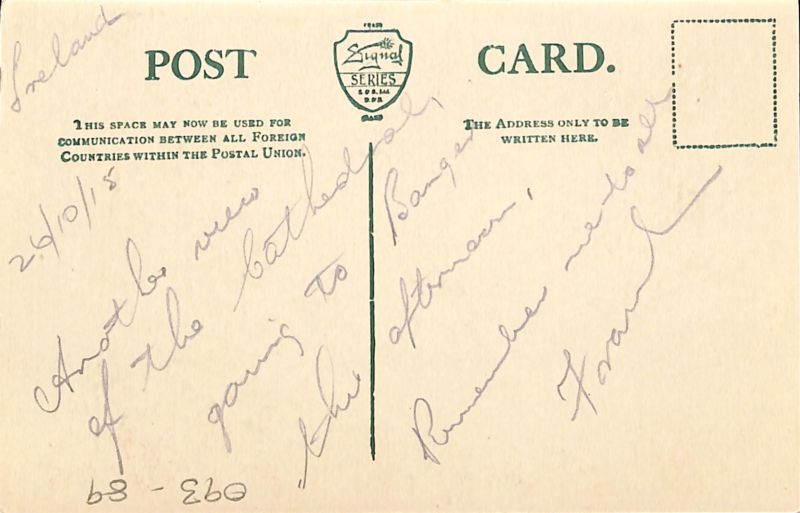 Ireland
POST CARD.
Signal
SERIES
THIS SPACE MAY NOW BE USED FOR
COMMUNICATION BETWEEN ALL FOREIGN
COUNTRIES WITHIN THE POSTAL UNION.
THE ADDRESS ONLY TO BE
WRITTEN HERE.
26/10/15
Another view
of the Cathedral,
going to Bangor
this afternoon,
Remember me to all
Frank
093 - 89